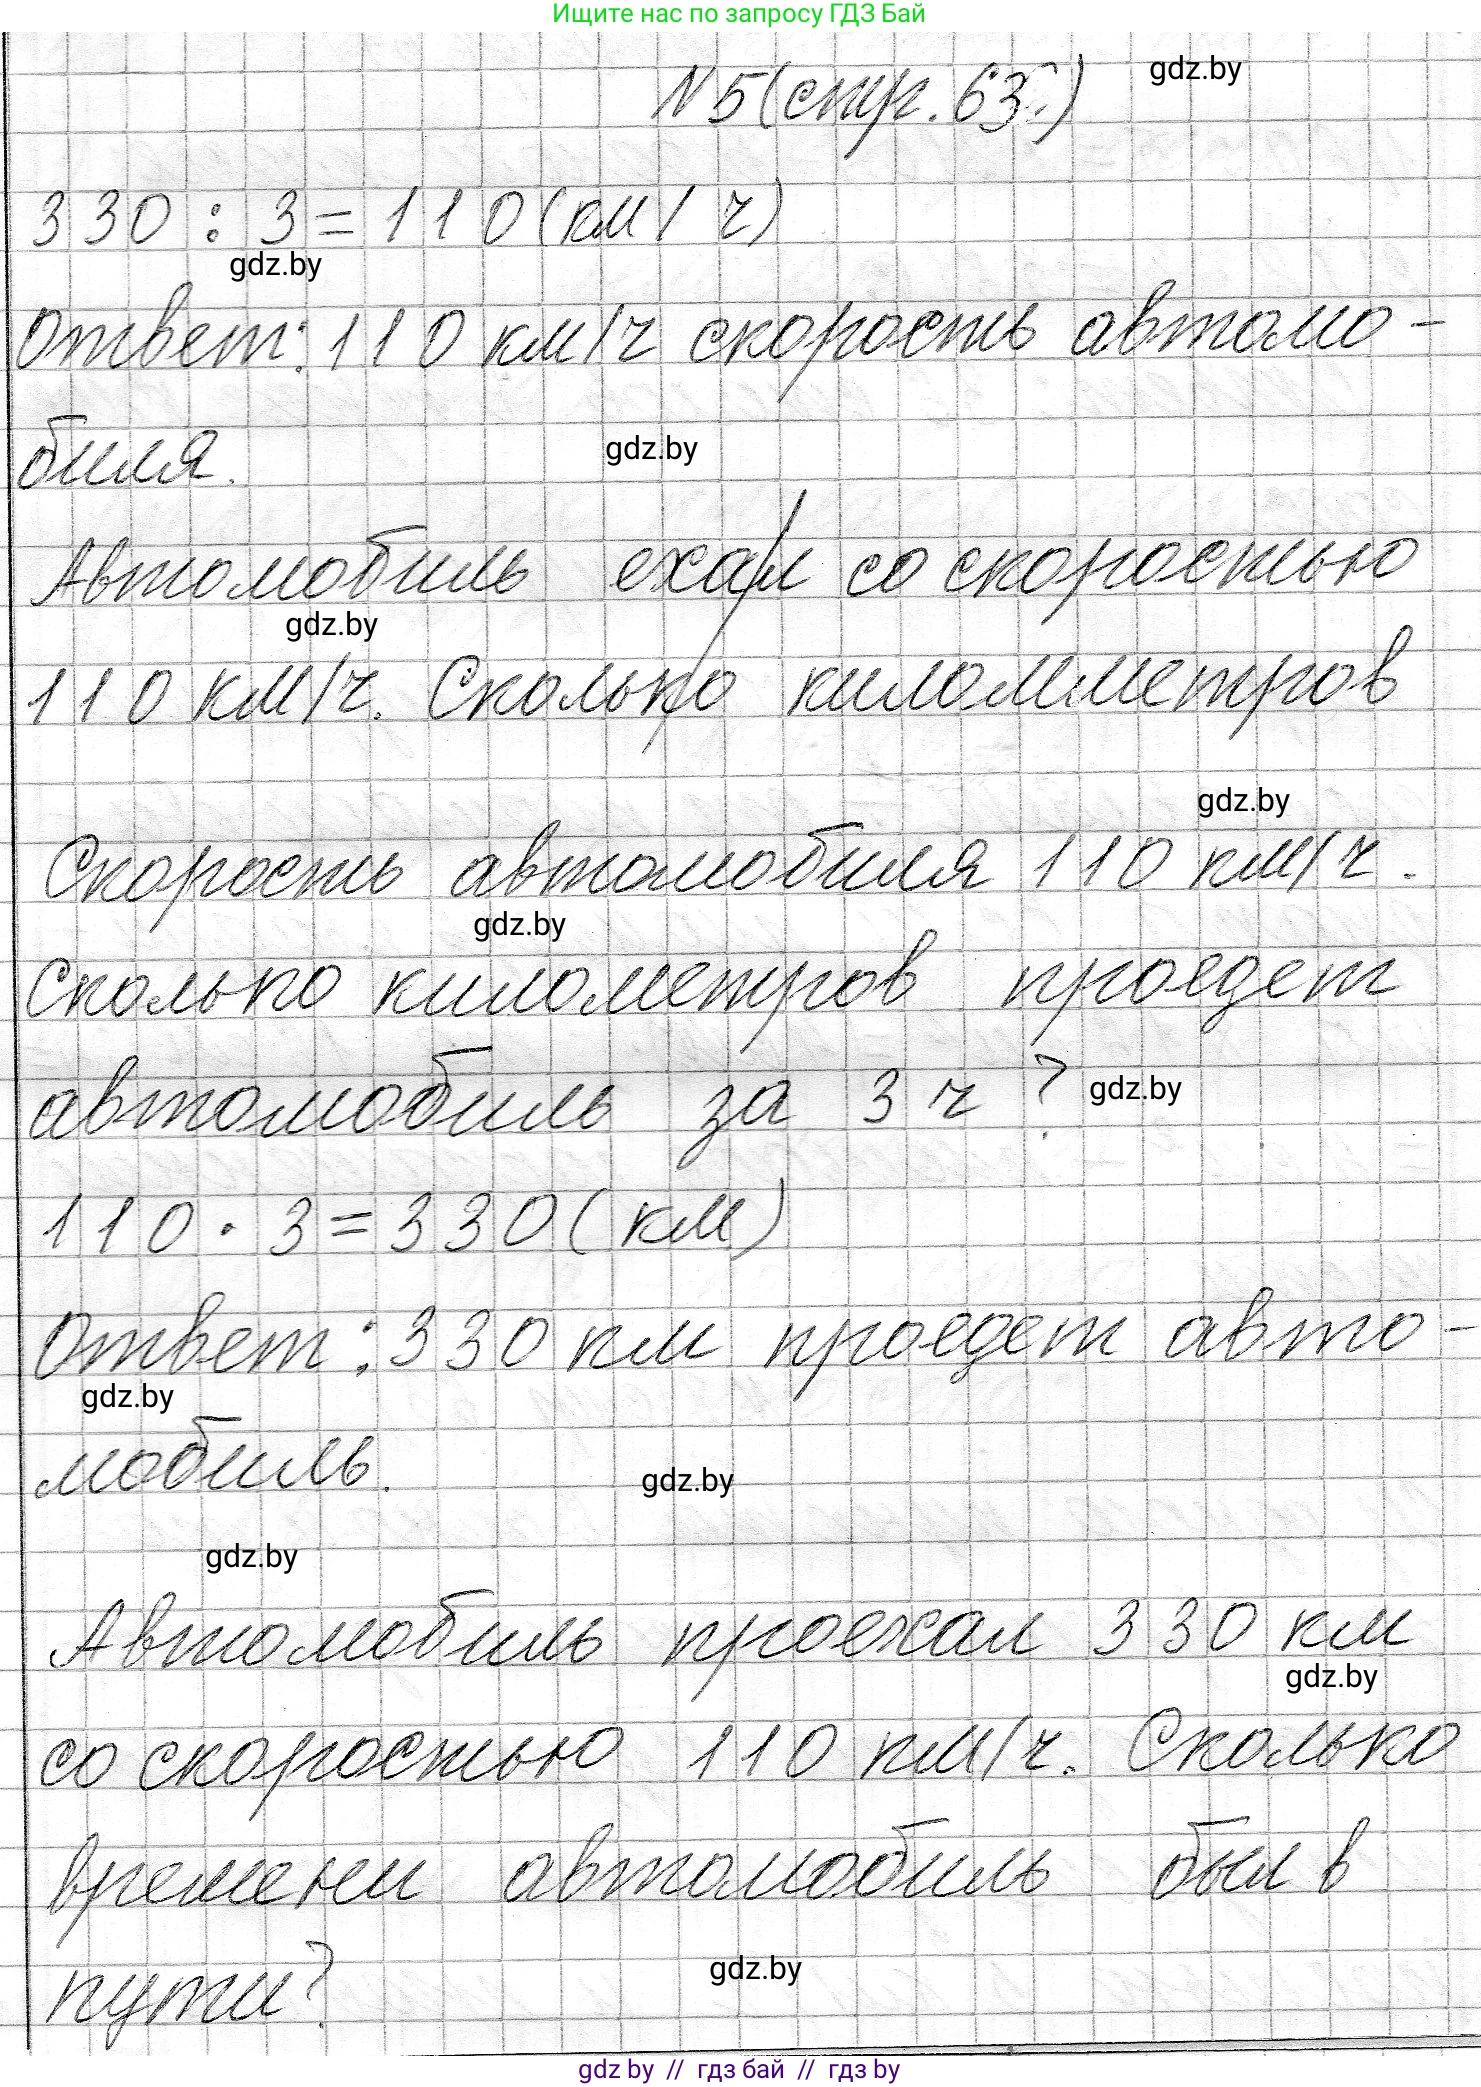 Ищите нас по запросу ГДЗ Бай
N5(стр. 63.)
gdz.by
330 : 3 = 110 (км / ч)
gdz.by
Ответ: 110 км/ч скорость автомо-
биля.
gdz.by
Автомобиль ехал со скоростью
gdz.by
110 км/ч. Сколько киломметров
gdz.by
Скорость автомобиля 110 км/ч.
gdz.by
Сколько километров проедет
автомобиль за 3 ч ?
gdz.by
110 · 3 = 330 ( км)
Ответ : 330 км проедет авто-
gdz.by
мобиль.
gdz.by
gdz.by
Автомобиль проехал 330 км
gdz.by
со скоростью 110 км/ч. Сколько
времени автомобиль был в
пути?
gdz.by
gdz by // гдз бай // гдз by